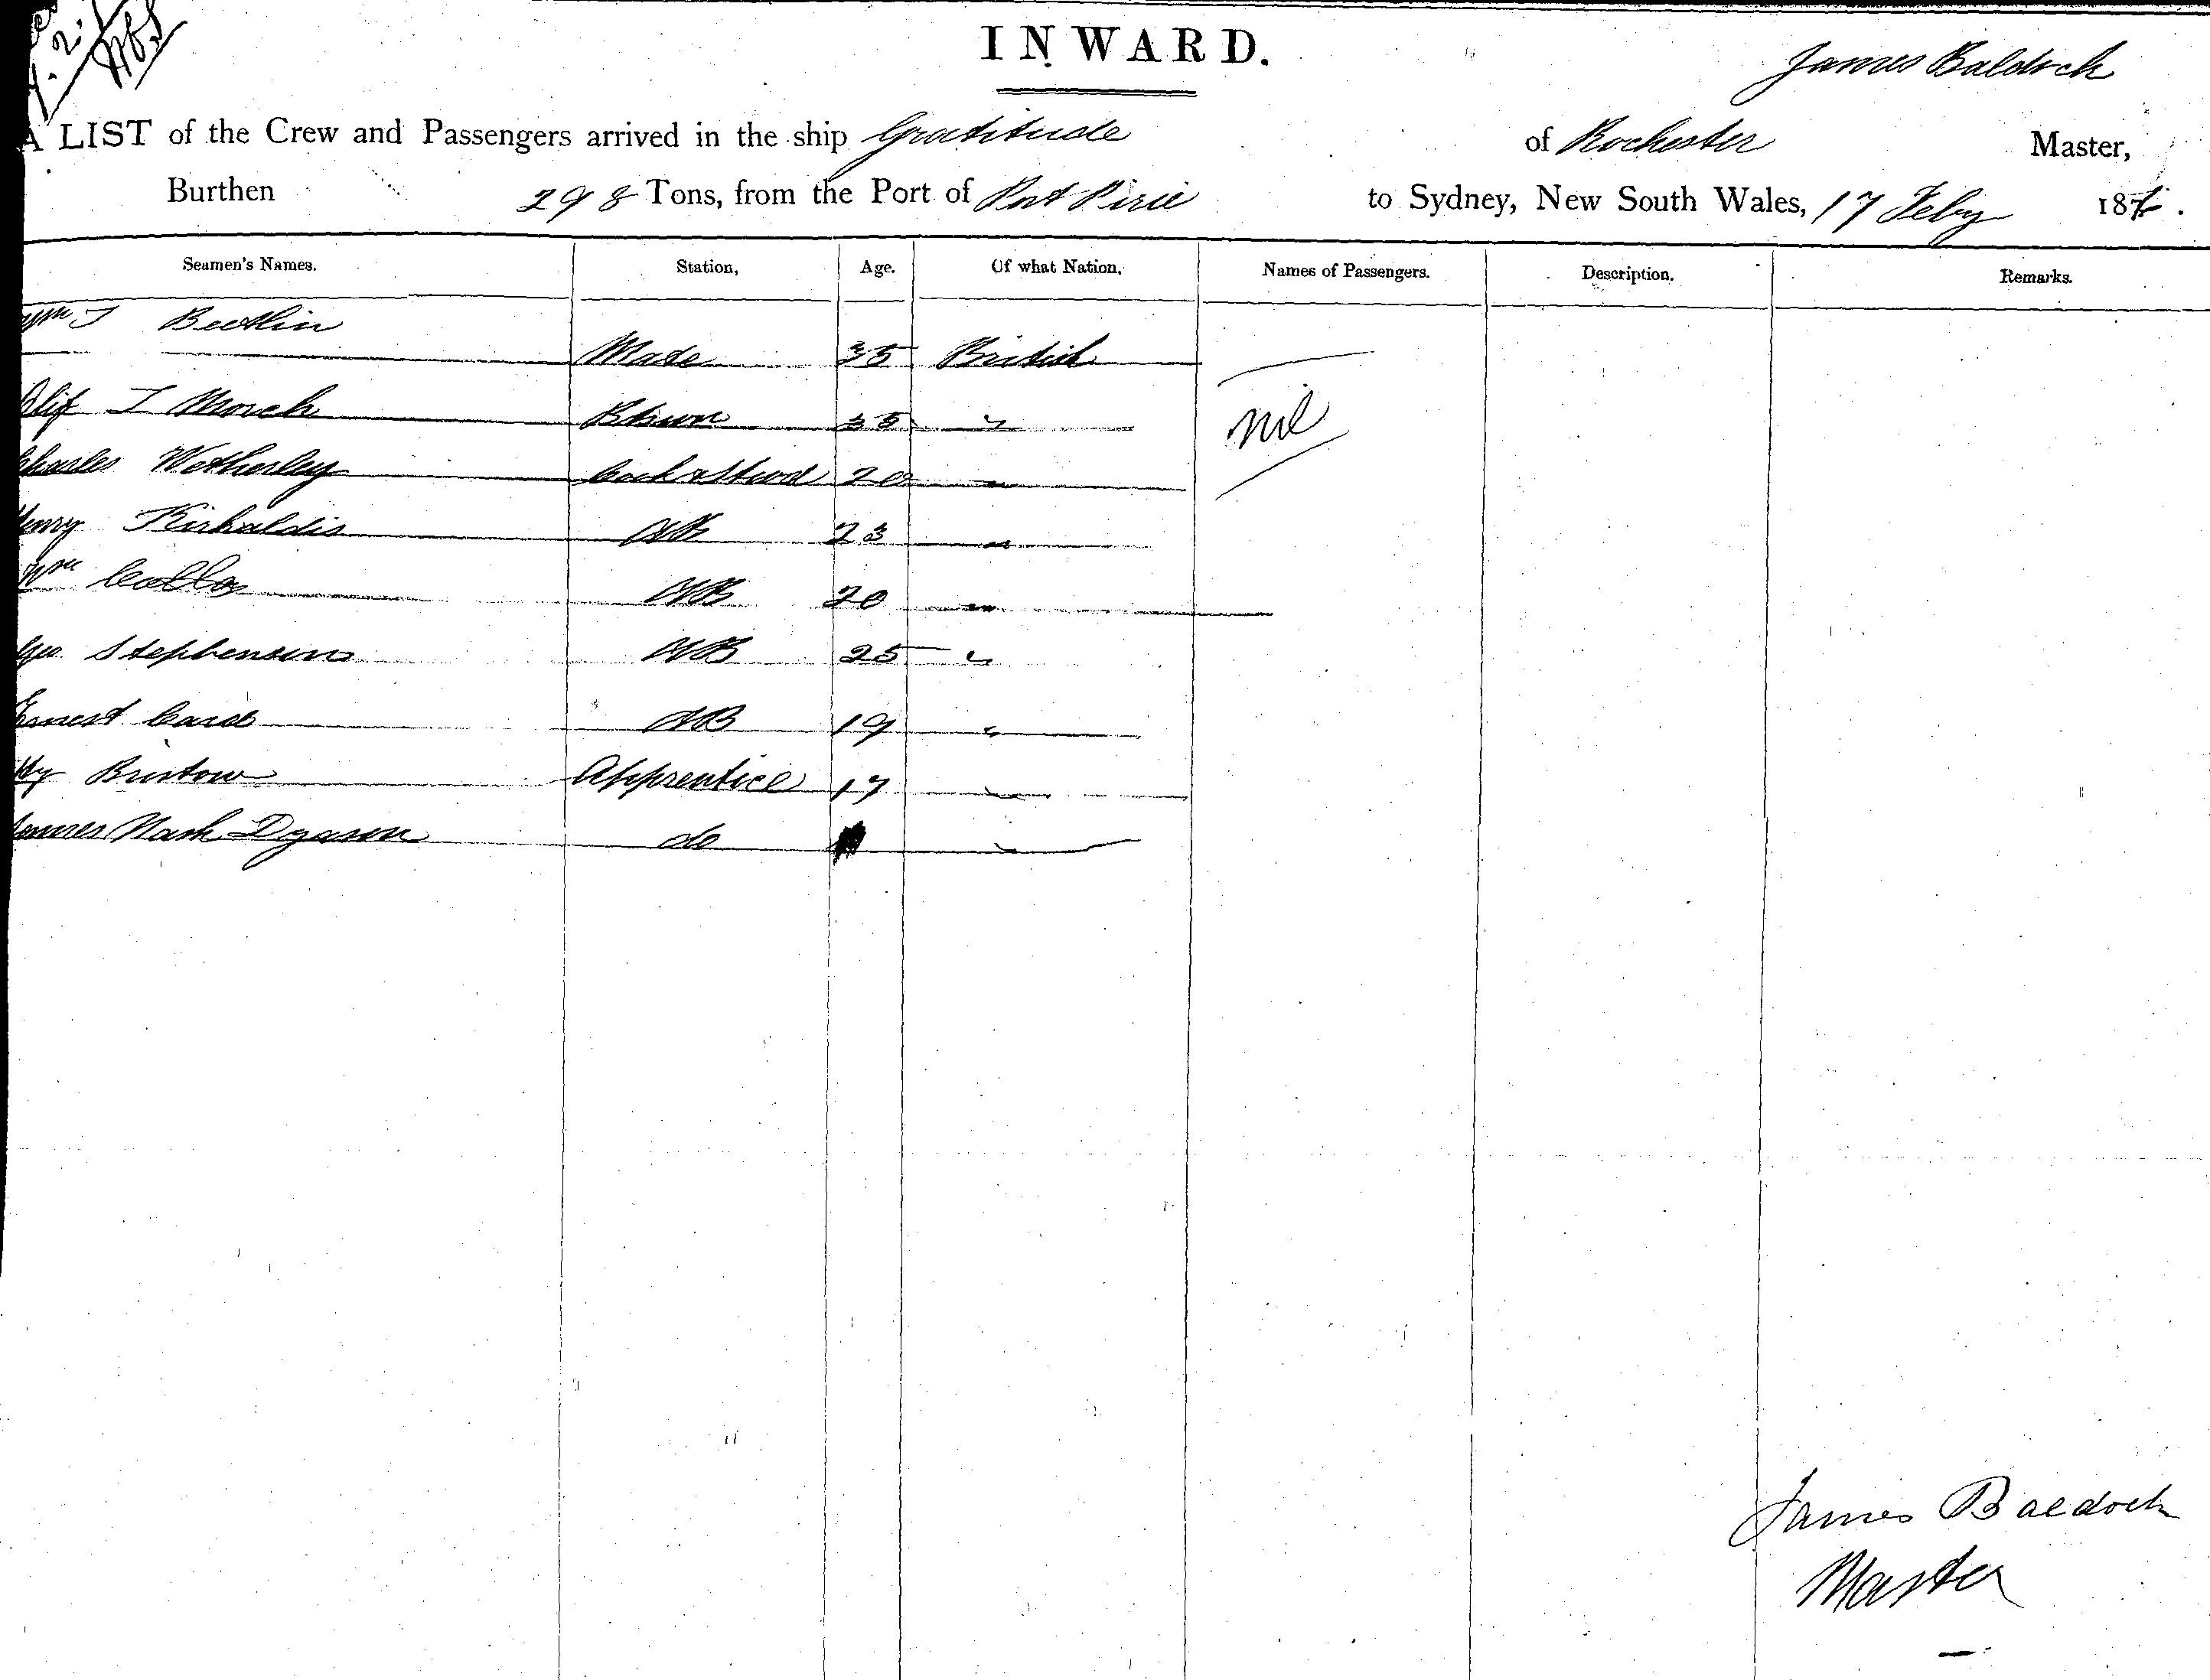 INWARD.
James Baldock
A LIST of the Crew and Passengers arrived in the ship Gratitude of Rochester Master,
Burthen 298 Tons, from the Port of Port Pirie to Sydney, New South Wales, 17 Feby 187
Seamen's Names. Station, Age. Of what Nation, Names of Passengers. Description. Remarks.
Wm J
Mate 35 British
J Morch Bosun 35 "
nil
Charles Wetherley Cook & Stwd 20 "
Henry Kirkaldis AB 23 "
Wm AB 20 "
Geo Stephenson AB 25 "
Ernest Card AB 19 "
Hy Bristow Apprentice 17 "
James Nash Dyason do "
James Baldock
Master